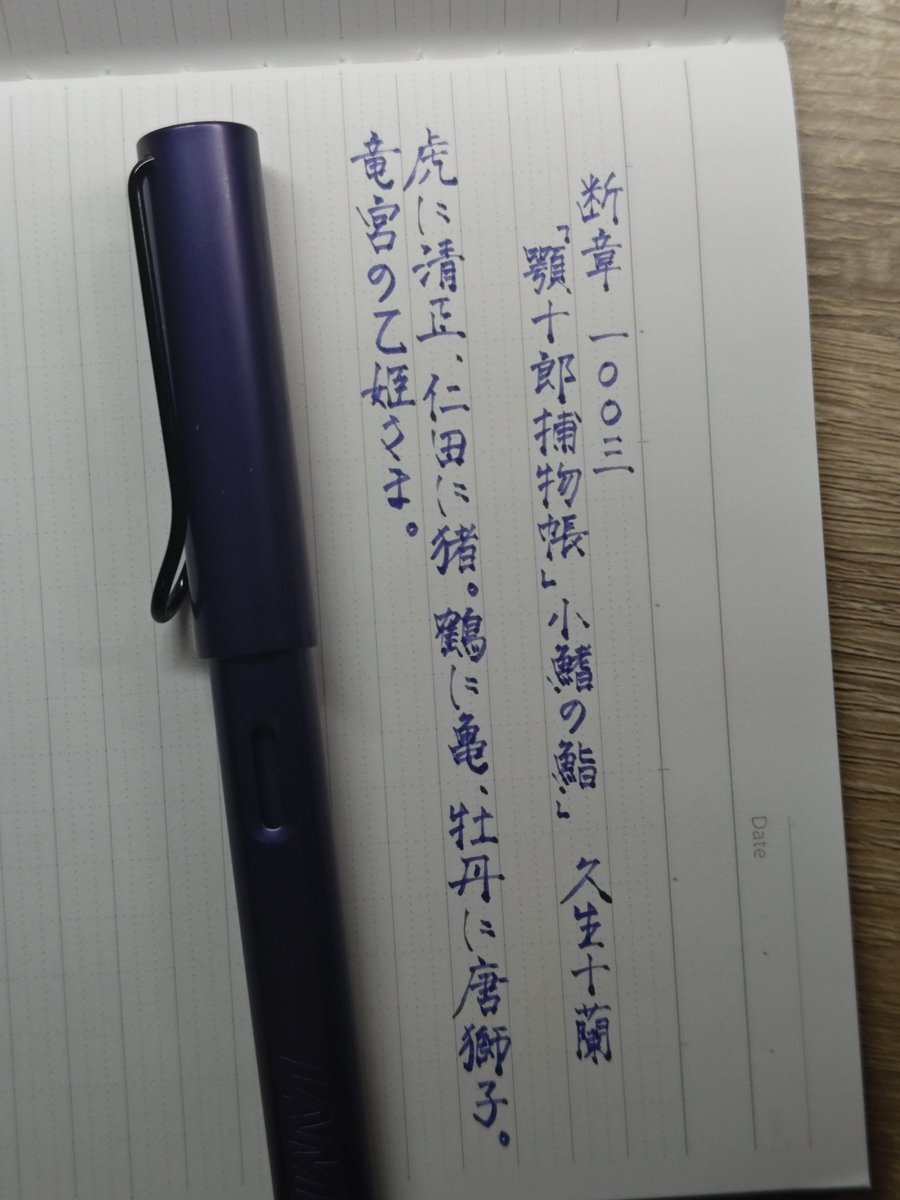 断章 一〇〇三
「顎十郎捕物帳」小鰭の鮨」 久生十蘭
虎に清正、仁田に猪。鶴に亀、牡丹に唐獅子。
竜宮の乙姫さま。
Date
LAMY